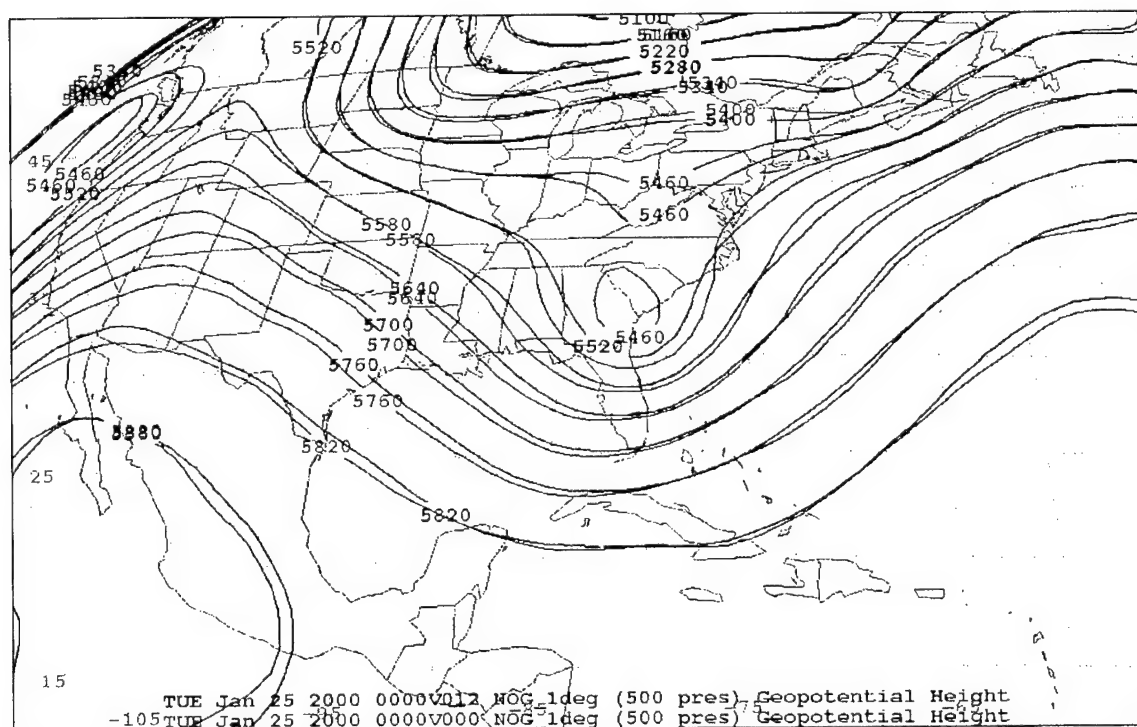 5100
5160
5520
5220
5280
5340
5340
5400
5400
5460
45
5460
5460
5460
5520
5460
5580
5580
5640
5640
5700
5460
5700
5520
5760
5760
5880
5820
25
5820
15
TUE Jan 25 2000 0000V012 NOG 1deg (500 pres) Geopotential Height
-105 TUE Jan 25 2000 0000V000 NOG 1deg (500 pres) Geopotential Height